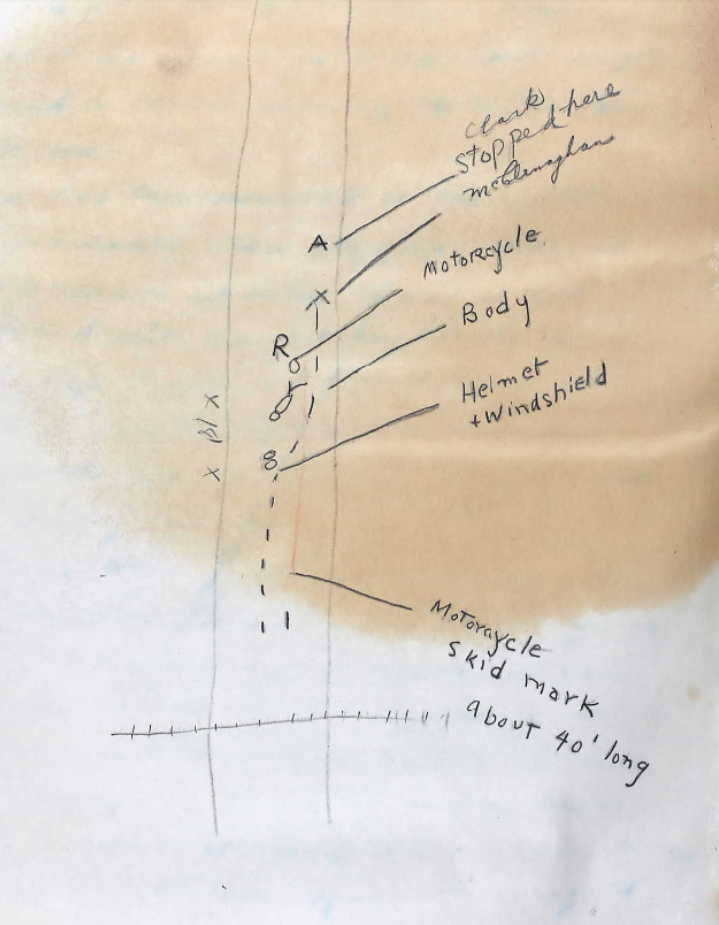 Clark
stopped here
McClenaghan
A
Motorcycle
X
Body
R
Helmet
+ Windshield
X
X
8
Motorcycle
skid mark
about 40' long